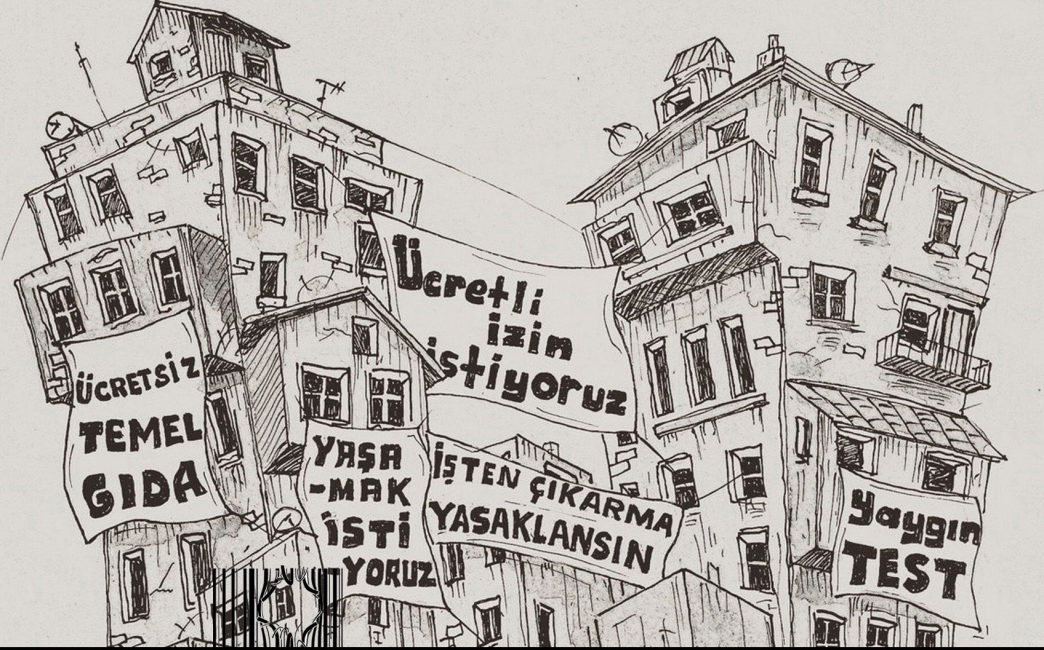 Ücretli
izin
istiyoruz
ÜCRETSİZ
TEMEL
GIDA
YAŞA
-MAK
İSTİ
-YORUZ
İŞTEN ÇIKARMA
YASAKLANSIN
yaygın
TEST